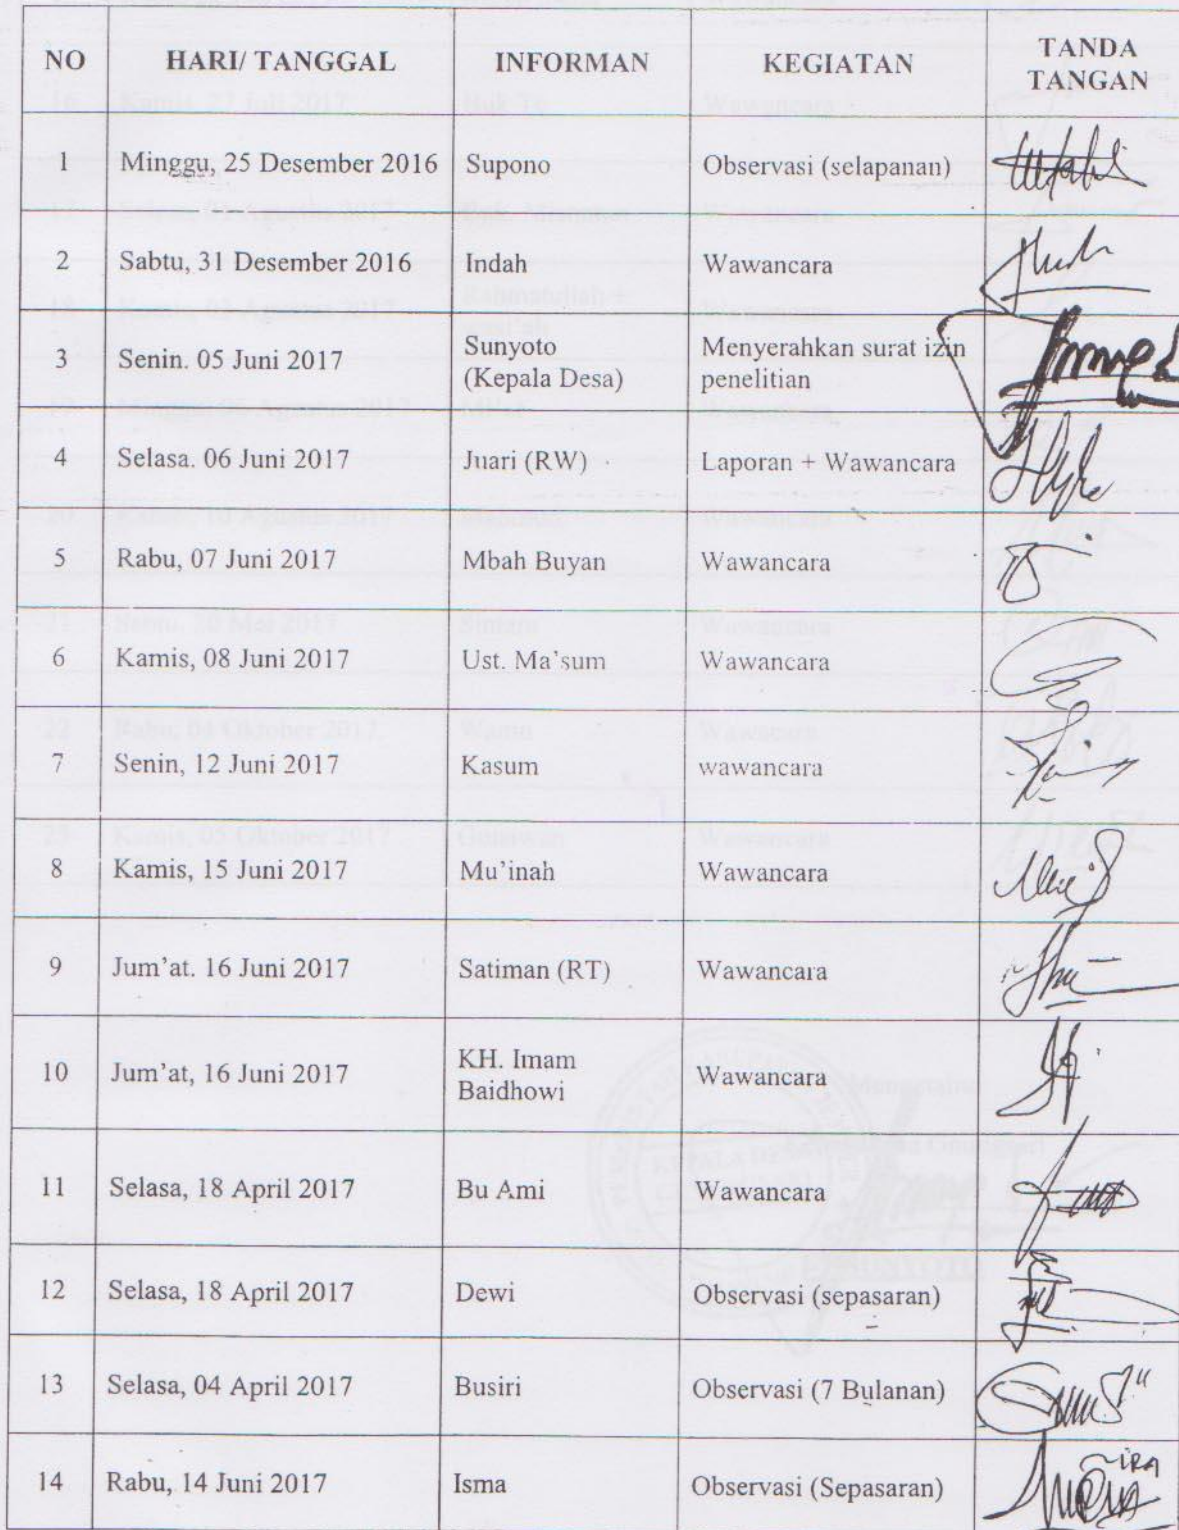 NO HARI/ TANGGAL INFORMAN KEGIATAN TANDA TANGAN
1 Minggu, 25 Desember 2016 Supono Observasi (selapanan)
2 Sabtu, 31 Desember 2016 Indah Wawancara
3 Senin. 05 Juni 2017 Sunyoto (Kepala Desa) Menyerahkan surat izin penelitian
4 Selasa. 06 Juni 2017 Juari (RW) Laporan + Wawancara
5 Rabu, 07 Juni 2017 Mbah Buyan Wawancara
6 Kamis, 08 Juni 2017 Ust. Ma'sum Wawancara
7 Senin, 12 Juni 2017 Kasum wawancara
8 Kamis, 15 Juni 2017 Mu'inah Wawancara
9 Jum'at. 16 Juni 2017 Satiman (RT) Wawancara
10 Jum'at, 16 Juni 2017 KH. Imam Baidhowi Wawancara
11 Selasa, 18 April 2017 Bu Ami Wawancara
12 Selasa, 18 April 2017 Dewi Observasi (sepasaran)
13 Selasa, 04 April 2017 Busiri Observasi (7 Bulanan)
14 Rabu, 14 Juni 2017 Isma Observasi (Sepasaran)